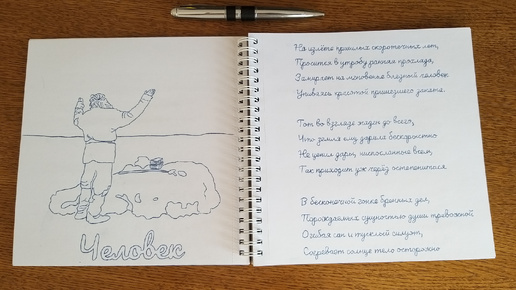 Человек
На излёте прошлых скоротечных лет,
Просится в утробу ранняя прохлада,
Замирает на мгновение блудной человек
Упиваясь красотой пришедшего заката.
Тот во взгляде жаден до всего,
Что земля ему дарила бескорыстно
Не ценил дары, ниспосланные ему,
Так приходит уж черёд остепениться
В бесконечной гонке бренных дел,
Порождаемых сущностью души тревожной
Огибая сап и тусклый силуэт,
Согревает солнце тело осторожно